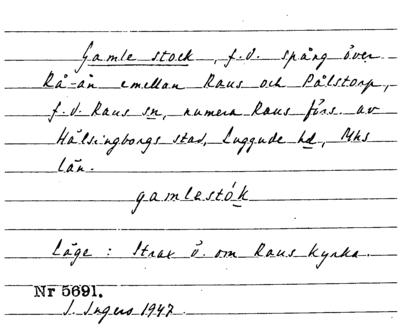 Gamle stock, f.d. spång över
Rå-ån emellan Raus och Pålstorp,
f.d. Raus sn, numera Raus förs. av
Hälsingborgs stad, Luggude hd, Mhs
län.
gamlestók
Läge: Strax ö. om Raus kyrka.
Nr 5691.
I. Ingers 1947.